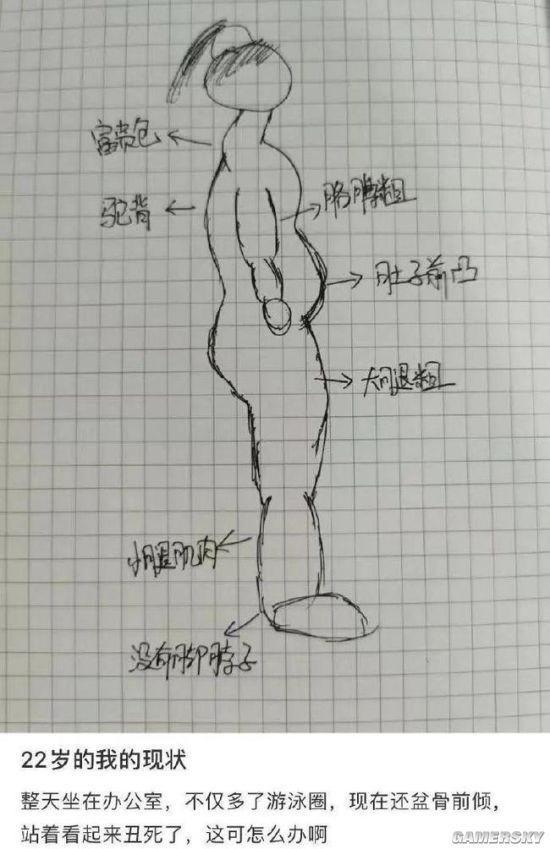 富贵包
驼背
胳膊粗
肚子前凸
大腿粗
小腿肌肉
没有脚脖子
22岁的我的现状
整天坐在办公室，不仅多了游泳圈，现在还盆骨前倾，
站着看起来丑死了，这可怎么办啊
GAMERSKY